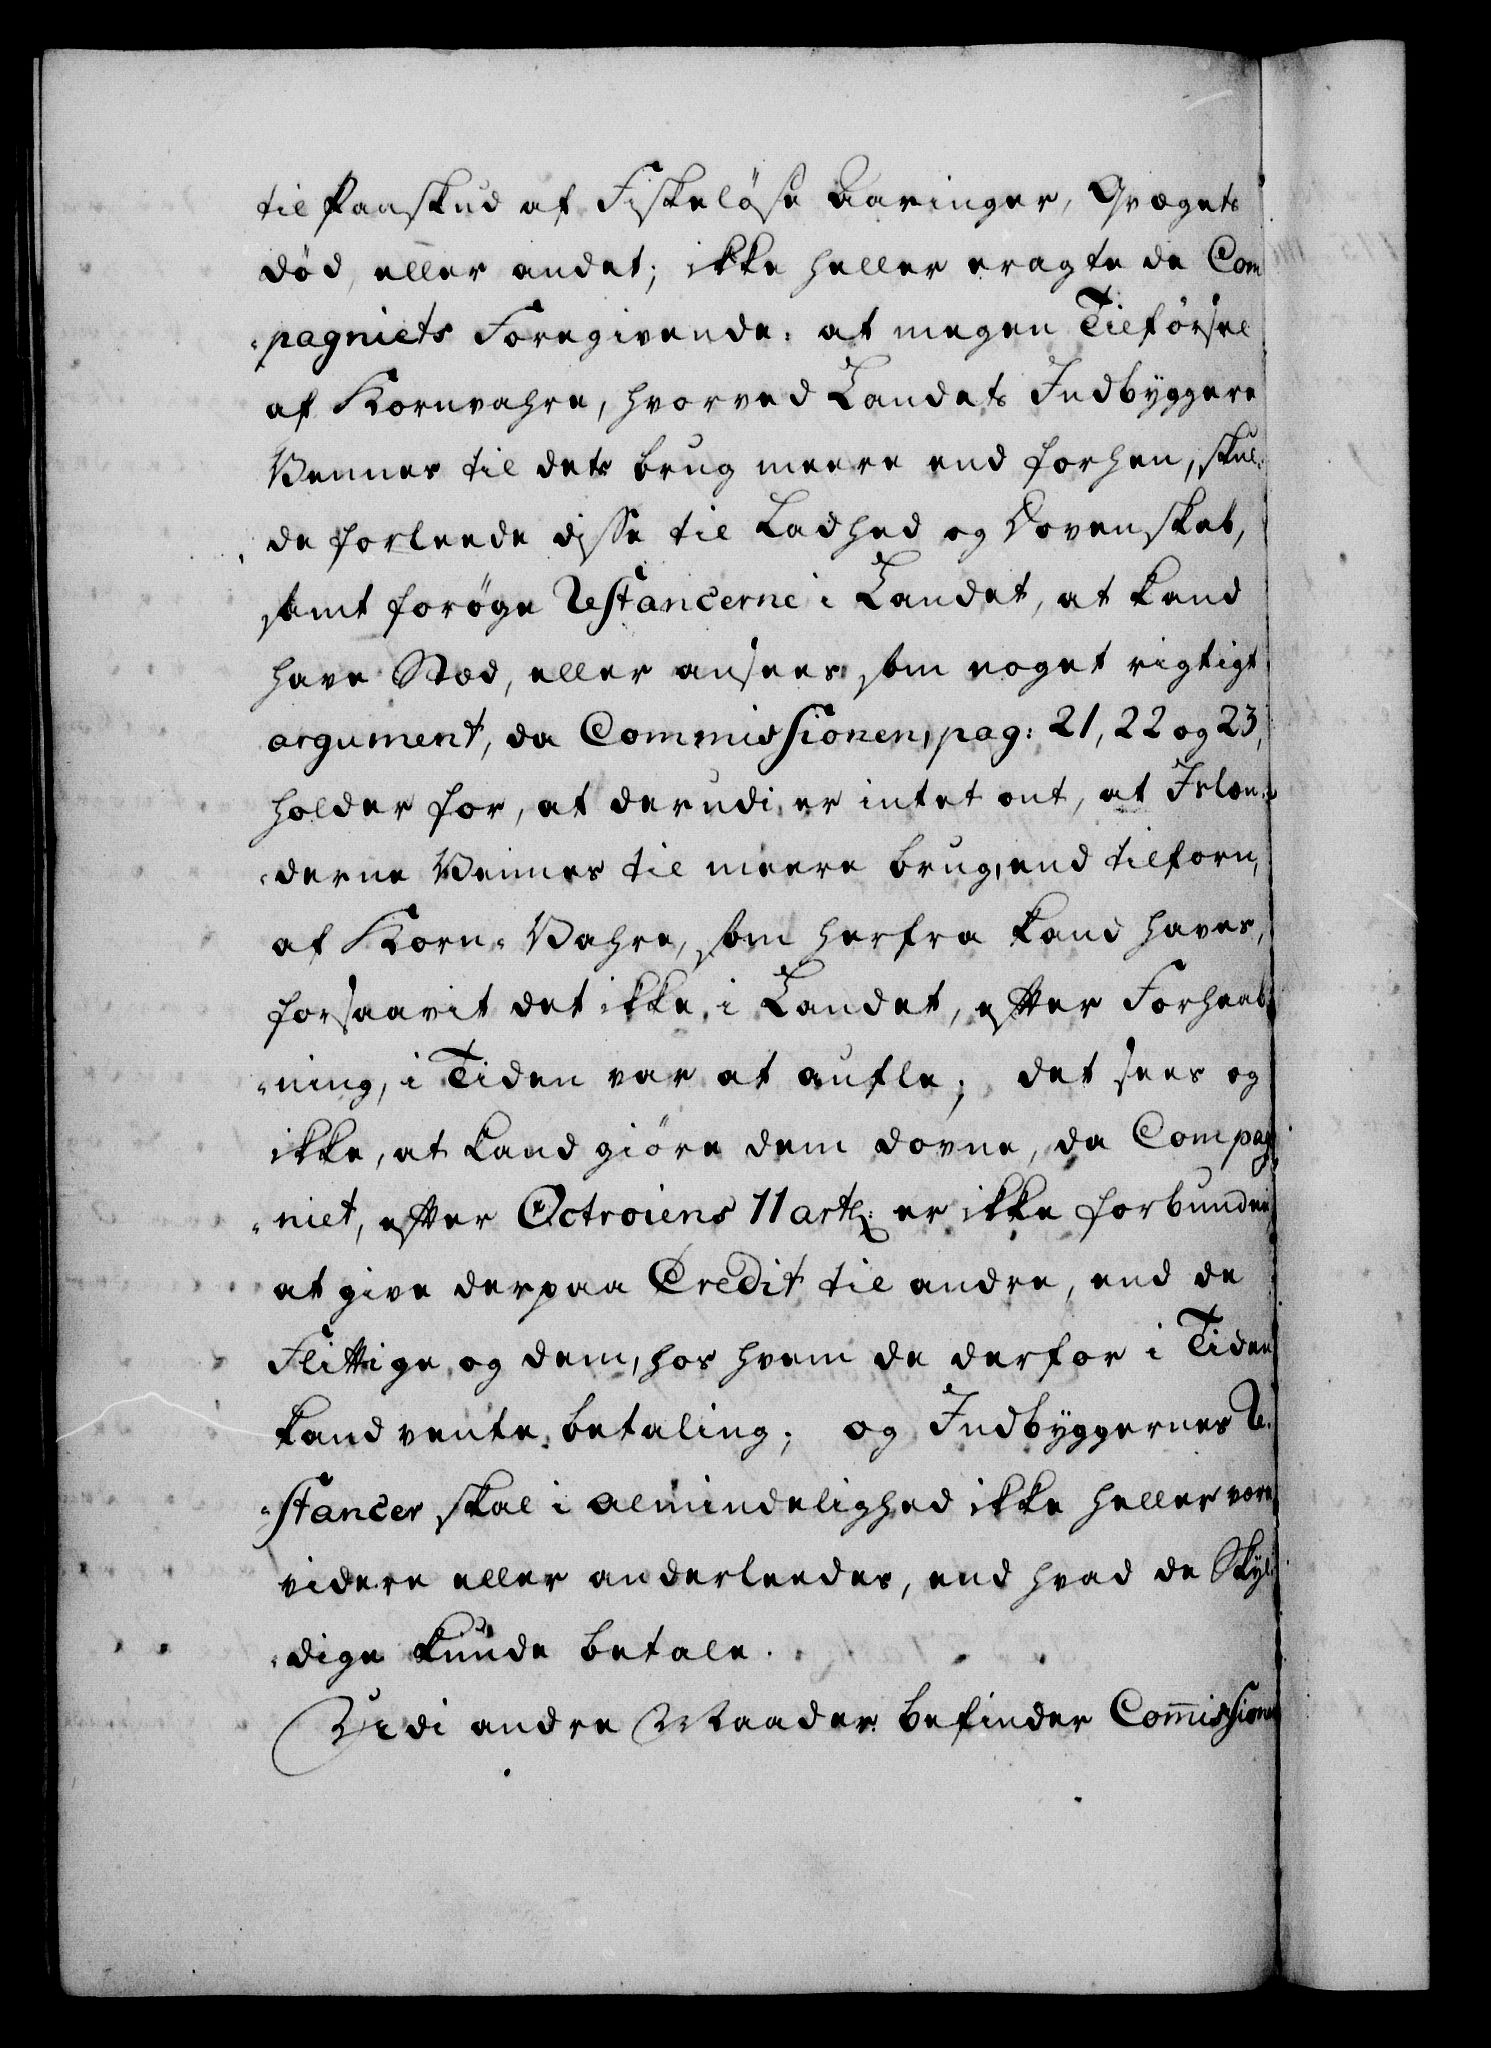 til Paaskud af Fiskelöse Aaringer, Qvægets
död, eller andet; ikke heller eragte de Com
-pagniets Foregivende: at megen Tilförsel
af Kornvahre, hvorved Landets Indbyggere
Vennes til dets brug meere end forhen, skul-
de forleede disse til Ladhed og Dovenskab,
samt foröge Restancerne i Landet, at kand
have Stæd, eller ansees som noget rigtigt
argument, da Commissionen, pag: 21, 22 og 23,
holder for, at derudi er intet ont, at Islæn-
-derne Vennes til meere brug, end tilforn,
af Korn-Vahre, som herfra kand haves,
forsaavit det ikke i Landet, efter Forhaab
-ning, i Tiden var at aufle; det sees og
ikke, at kand giöre dem dovne, da Compag
-niet, efter Octroiens 11 artl: er ikke forbunden
at give derpaa Credit til andre, end de
Flittige og dem, hos hvem de derfor i Tiden
kand vente betaling; og Indbyggernes Re-
-stancer skal i Almindelighed ikke heller være
videre eller anderleedes, end hvad de Skyl-
-dige kunde betale.
Udi andre Maader befinder Com̅issionen